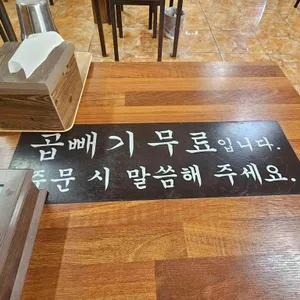 곱빼기무료입니다.
주문 시 말씀해 주세요.